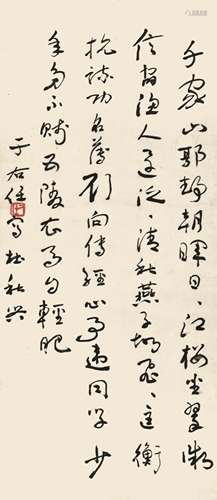 千家山郭靜朝暉日、江樓坐翠微
信宿漁人還泛、清秋燕子故飛、匡衡
抗疏功名薄劉向傳經心事違同學少
年多不賤五陵衣馬自輕肥
于右任寫杜秋興